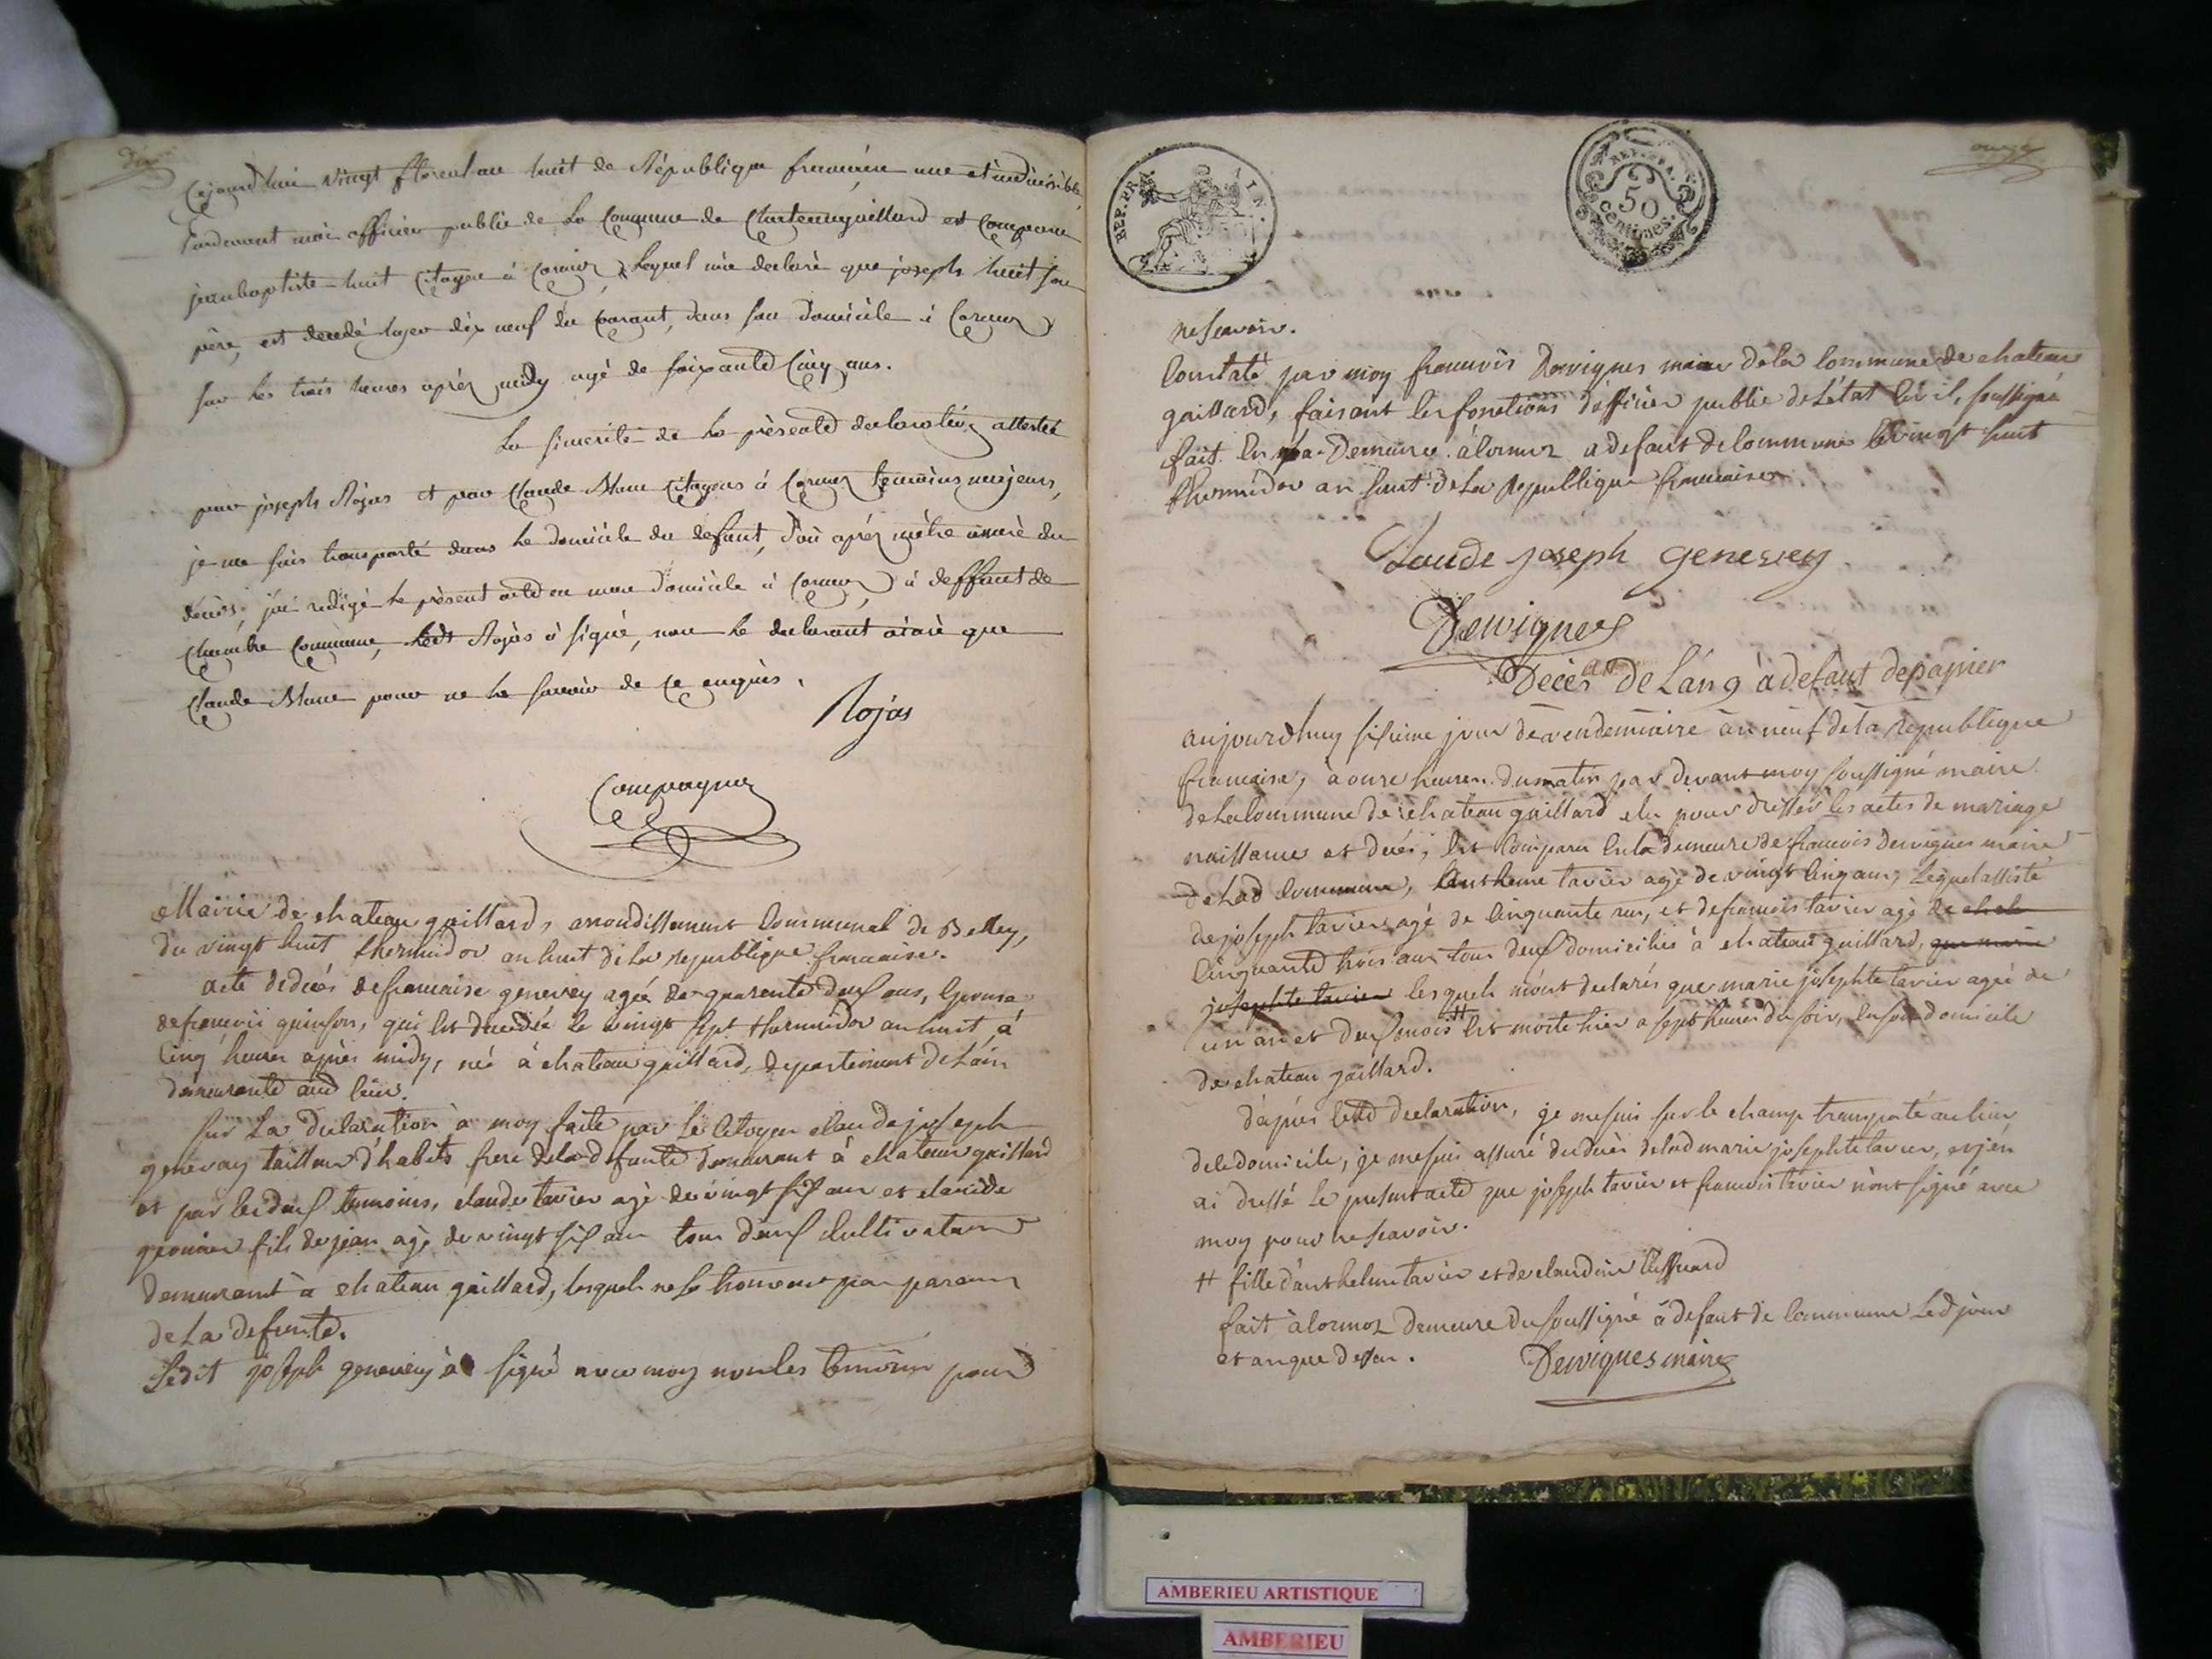 dix
Cejourd'hui vingt floreal an huit de République francaise une et indivisible,
Pardevant moi officier public de la Commune de Chateaugaillard est Comparu
jeanbaptiste huit Citoyen à Cormoz, lequel m'a declaré que joseph huit son
père, est decedé hyer dix neuf du Courant, dans son domicile à Cormoz
sur les trois heures après midy agé de soixante Cinq ans.
La sincerité de la présente declaration attestée
par joseph Rojas et par Claude Blanc Citoyens à Cormoz temoins majeurs,
je me suis transporté dans le domicile du defunt, d'où après m'être assuré du
décès, j'ai redigé le présent acte en mon domicile à Cormoz à deffaut de
Chambre Commune, ledit Rojas à signé, non le declarant ainsi que
Claude Blanc pour ne le savoir de ce enquis.
Rojas
Compagnon
Mairie de chateau gaillard, arrondissement Communal de Belley,
du vingt huit thermidor an huit de la republique francaise.
acte de décés de francaise genevey agée de quarente deux ans, Epouse
de francois guinson, qui Est decedée le vingt sept thermidor an huit à
Cinq heures après midy, né à chateau gaillard, departement de Lain
demeurante aud lieu.
sur La declaration à moy faite par le Citoyen claude joseph
genevay tailleur d'habits frere de lad defunte demeurant à chateau gaillard
et par les deux temoins, claude tavier agé de vingt six ans et claude
fils de jean agé de vingt six ans tous deux Cultivateurs
demeurant à chateau gaillard, lesquels ne se trouvent pas parents
de La defunte.
Ledit joseph genevey à signé avec moy non les temoins pour
onze
REP. FRA.
50
centimes.
ne scavoir.
Constaté par moy francois Dervignes maire de la Commune de chateau
gaillard, faisant les fonctions d'officier public de L'état Civil, soussigné
fait En ma Demeure à Cormoz a defaut de Commune le vingt huit
thermidor an huit de La Republique francaise
Claude joseph genevey
Dervignes
Décès de L'an 9 à defaut de papier
aujourdhuy sixieme jour de vendemiaire an neuf de la Republique
francaise, à onze heures du matin par devant moy soussigné maire
de La Commune de chateau gaillard elu pour dresser les actes de mariage
naissance et décés, Est Comparu En la demeure de francois Dervignes maire
de Lad Commune, Anthelme tavier agé de vingt Cinq ans, Lequel assisté
de joseph tavier agé de Cinquante ans, et de francois tavier agé de
Cinquante trois ans tous deux domiciliés à chateau gaillard, que marie
josephte tavier lesquels m'ont declarés que marie josephte tavier agée de
un an et deux mois # Est morte hier a sept heures du soir, En son domicile
de chateau gaillard.
d'après Cette declaration, je me suis sur le champ transporté au lieu
de le domicile, je me suis assuré du décès de lad marie josephte tavier, et j'en
ai dressé le present acte que joseph tavier et francois tavier n'ont signé avec
moy pour ne scavoir.
# fille d'anthelme tavier et de claudine
fait à Cormoz demeure du soussigné à defaut de Commune Led jour
et an que dessus.
Dervignes maire
AMBERIEU ARTISTIQUE
AMBERIEU